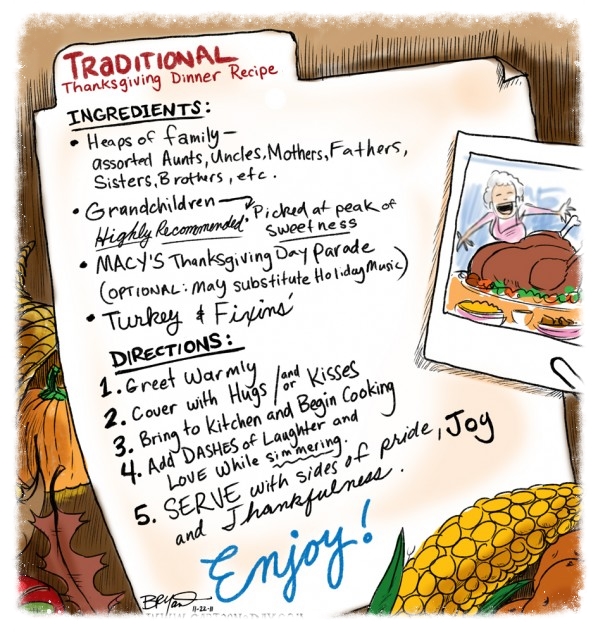 TRADITIONAL
Thanksgiving Dinner Recipe
INGREDIENTS:
• Heaps of family—
assorted Aunts, Uncles, Mothers, Fathers,
Sisters, Brothers, etc.
• Grandchildren → Picked at peak of
Highly Recommended. sweetness
• MACY'S Thanksgiving Day Parade
(OPTIONAL: may substitute Holiday Music)
• Turkey & Fixins'
DIRECTIONS:
1. Greet Warmly
2. Cover with Hugs and/or Kisses
3. Bring to Kitchen and Begin Cooking
4. Add DASHES of Laughter and
LOVE while simmering.
5. SERVE with sides of pride, Joy
and Thankfulness.
Enjoy!
BRYan
11-22-11